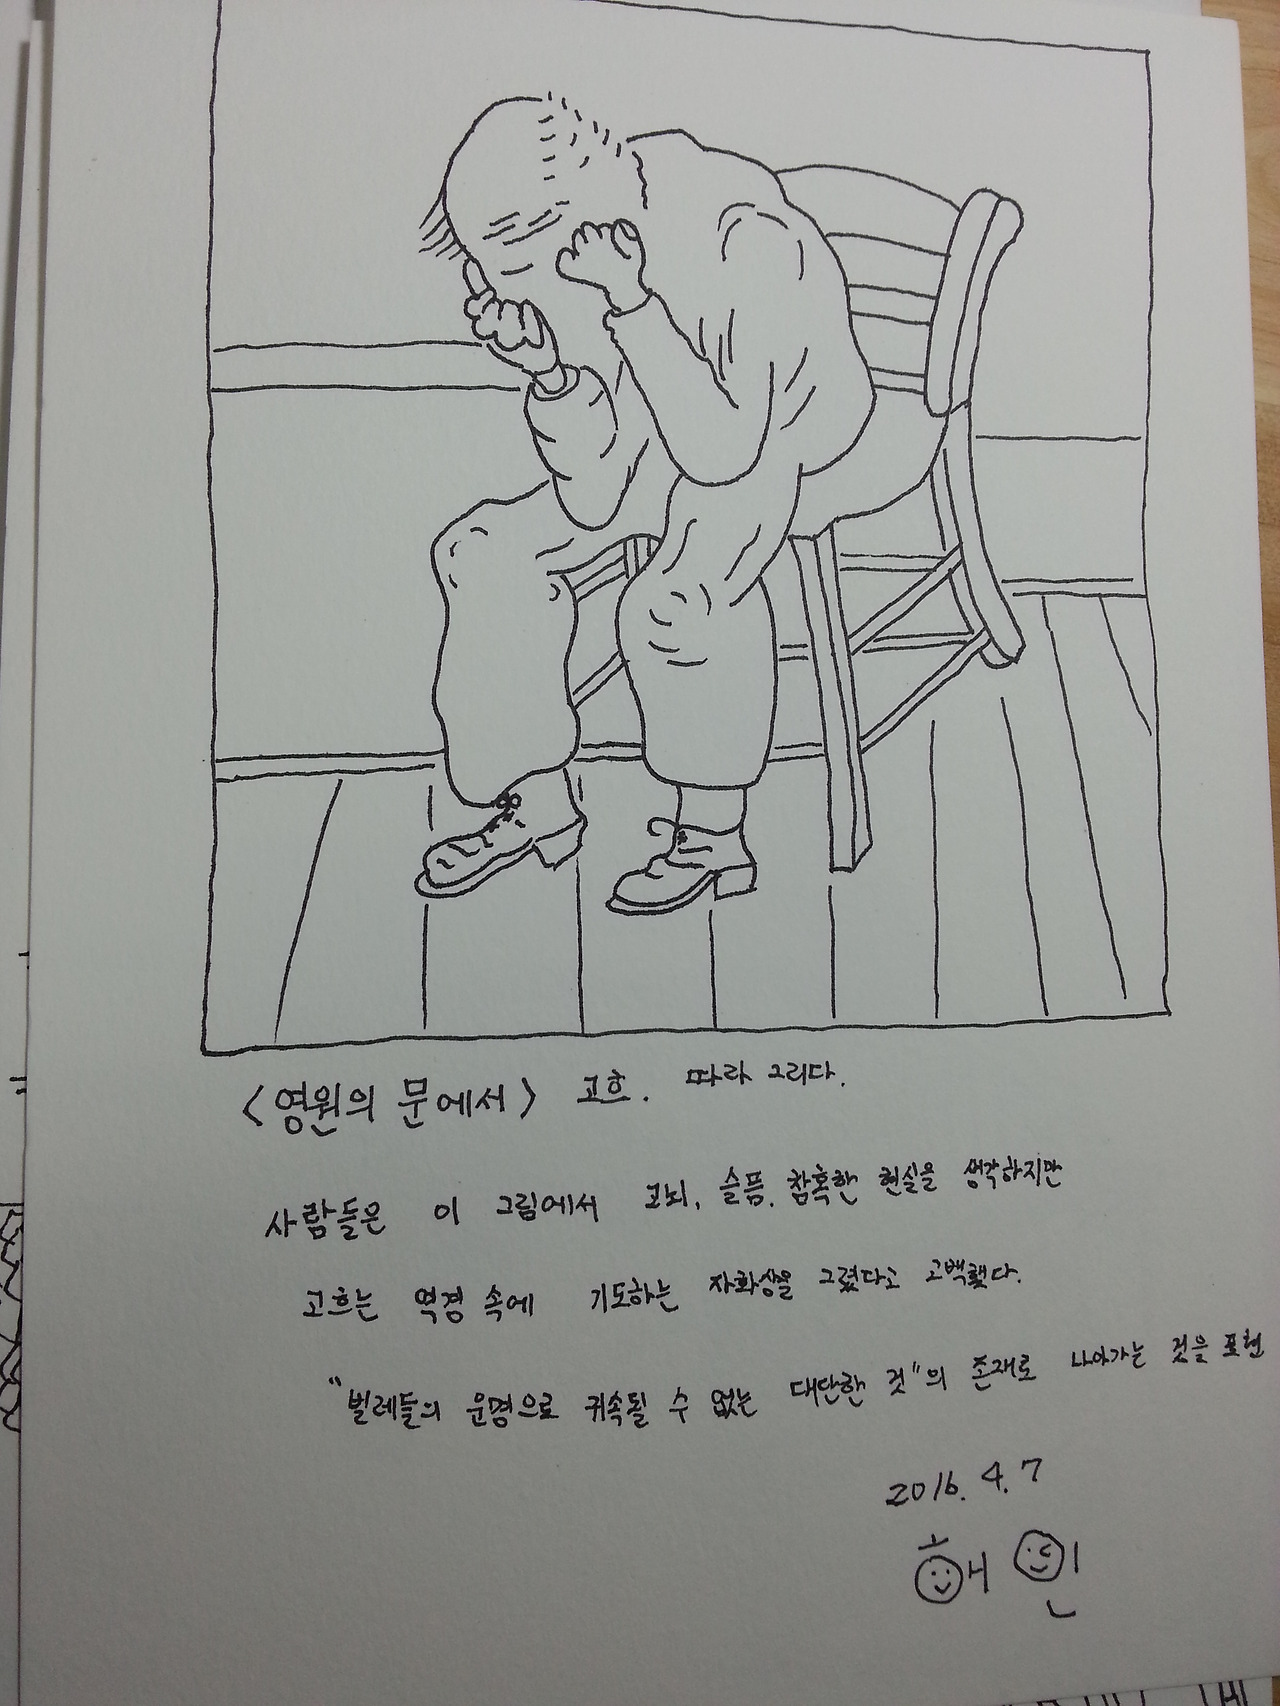 <영원의 문에서> 고흐. 따라 그리다.
사람들은 이 그림에서 고뇌, 슬픔, 참혹한 현실을 생각하지만
고흐는 역경 속에 기도하는 자화상을 그렸다고 고백했다.
"벌레들의 운명으로 귀속될 수 없는 대단한 것"의 존재로 나아가는 것을 표현
2016. 4. 7
해인